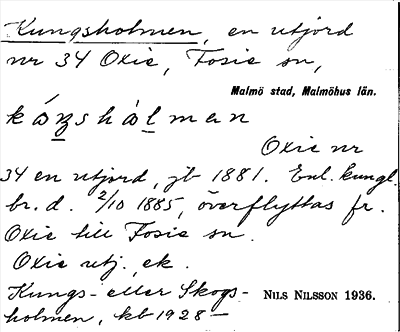 Kungsholmen, en utjord
nr 34 Oxie, Fosie sn,
Malmö stad, Malmöhus län.
Oxie nr
34 en utjord, jb 1881. Enl. kungl.
br. d. 2/10 1885, överflyttas fr.
Oxie till Fosie sn.
Oxie utj. ek.
Kungs- eller Skogs-
holmen, kb 1928 —
NILS NILSSON 1936.